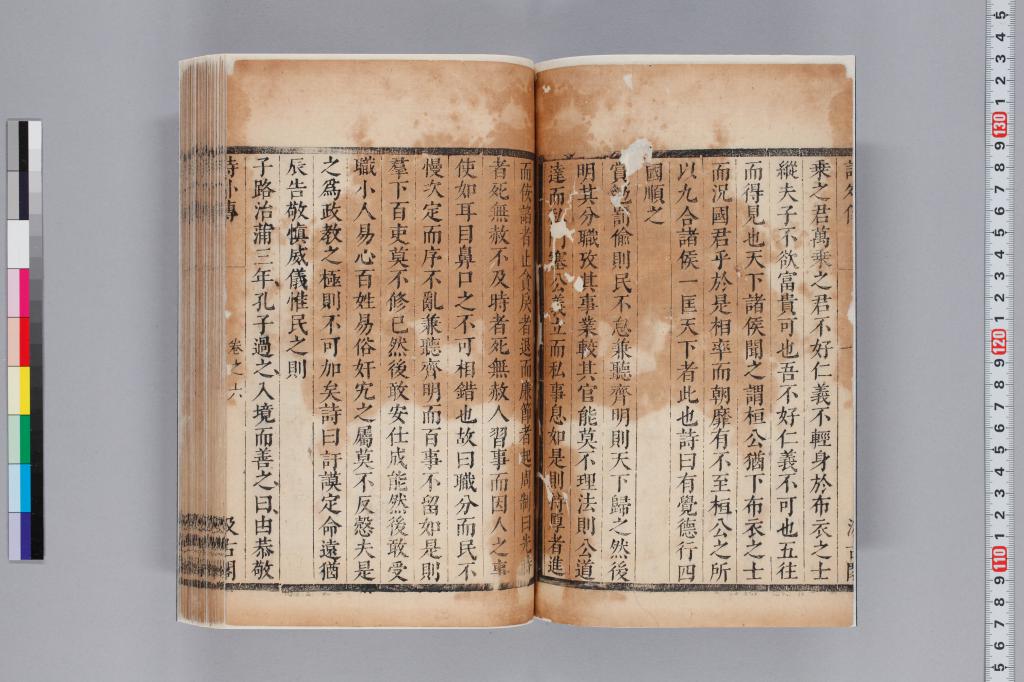 乘之君萬乘之君不好仁義不輕身於布衣之士
縱夫子不欲富貴可也吾不好仁義不可也五往
而得見也天下諸侯聞之謂桓公猶下布衣之士
而況國君乎於是相率而朝靡有不至桓公之所
以九合諸侯一匡天下者此也詩曰有覺德行四
國順之
賞勉罰偷則民不怠兼聽齊明則天下歸之然後
明其分職攷其事業較其官能莫不理法則公道
達而私門塞公義立而私事息如是則得厚者進
而佞諂者止貪戾者退而廉節者起周制曰先時
者死無赦不及時者死無赦人習事而因人之事
使如耳目鼻口之不可相錯也故曰職分而民不
慢次定而序不亂兼聽齊明而百事不留如是則
羣下百吏莫不修已然後敢安仕成能然後敢受
職小人易心百姓易俗奸宄之屬莫不反愨夫是
之爲政教之極則不可加矣詩曰訏謨定命遠猶
辰告敬慎威儀惟民之則
子路治蒲三年孔子過之入境而善之曰由恭敬
詩外傳
卷之六
汲古閣